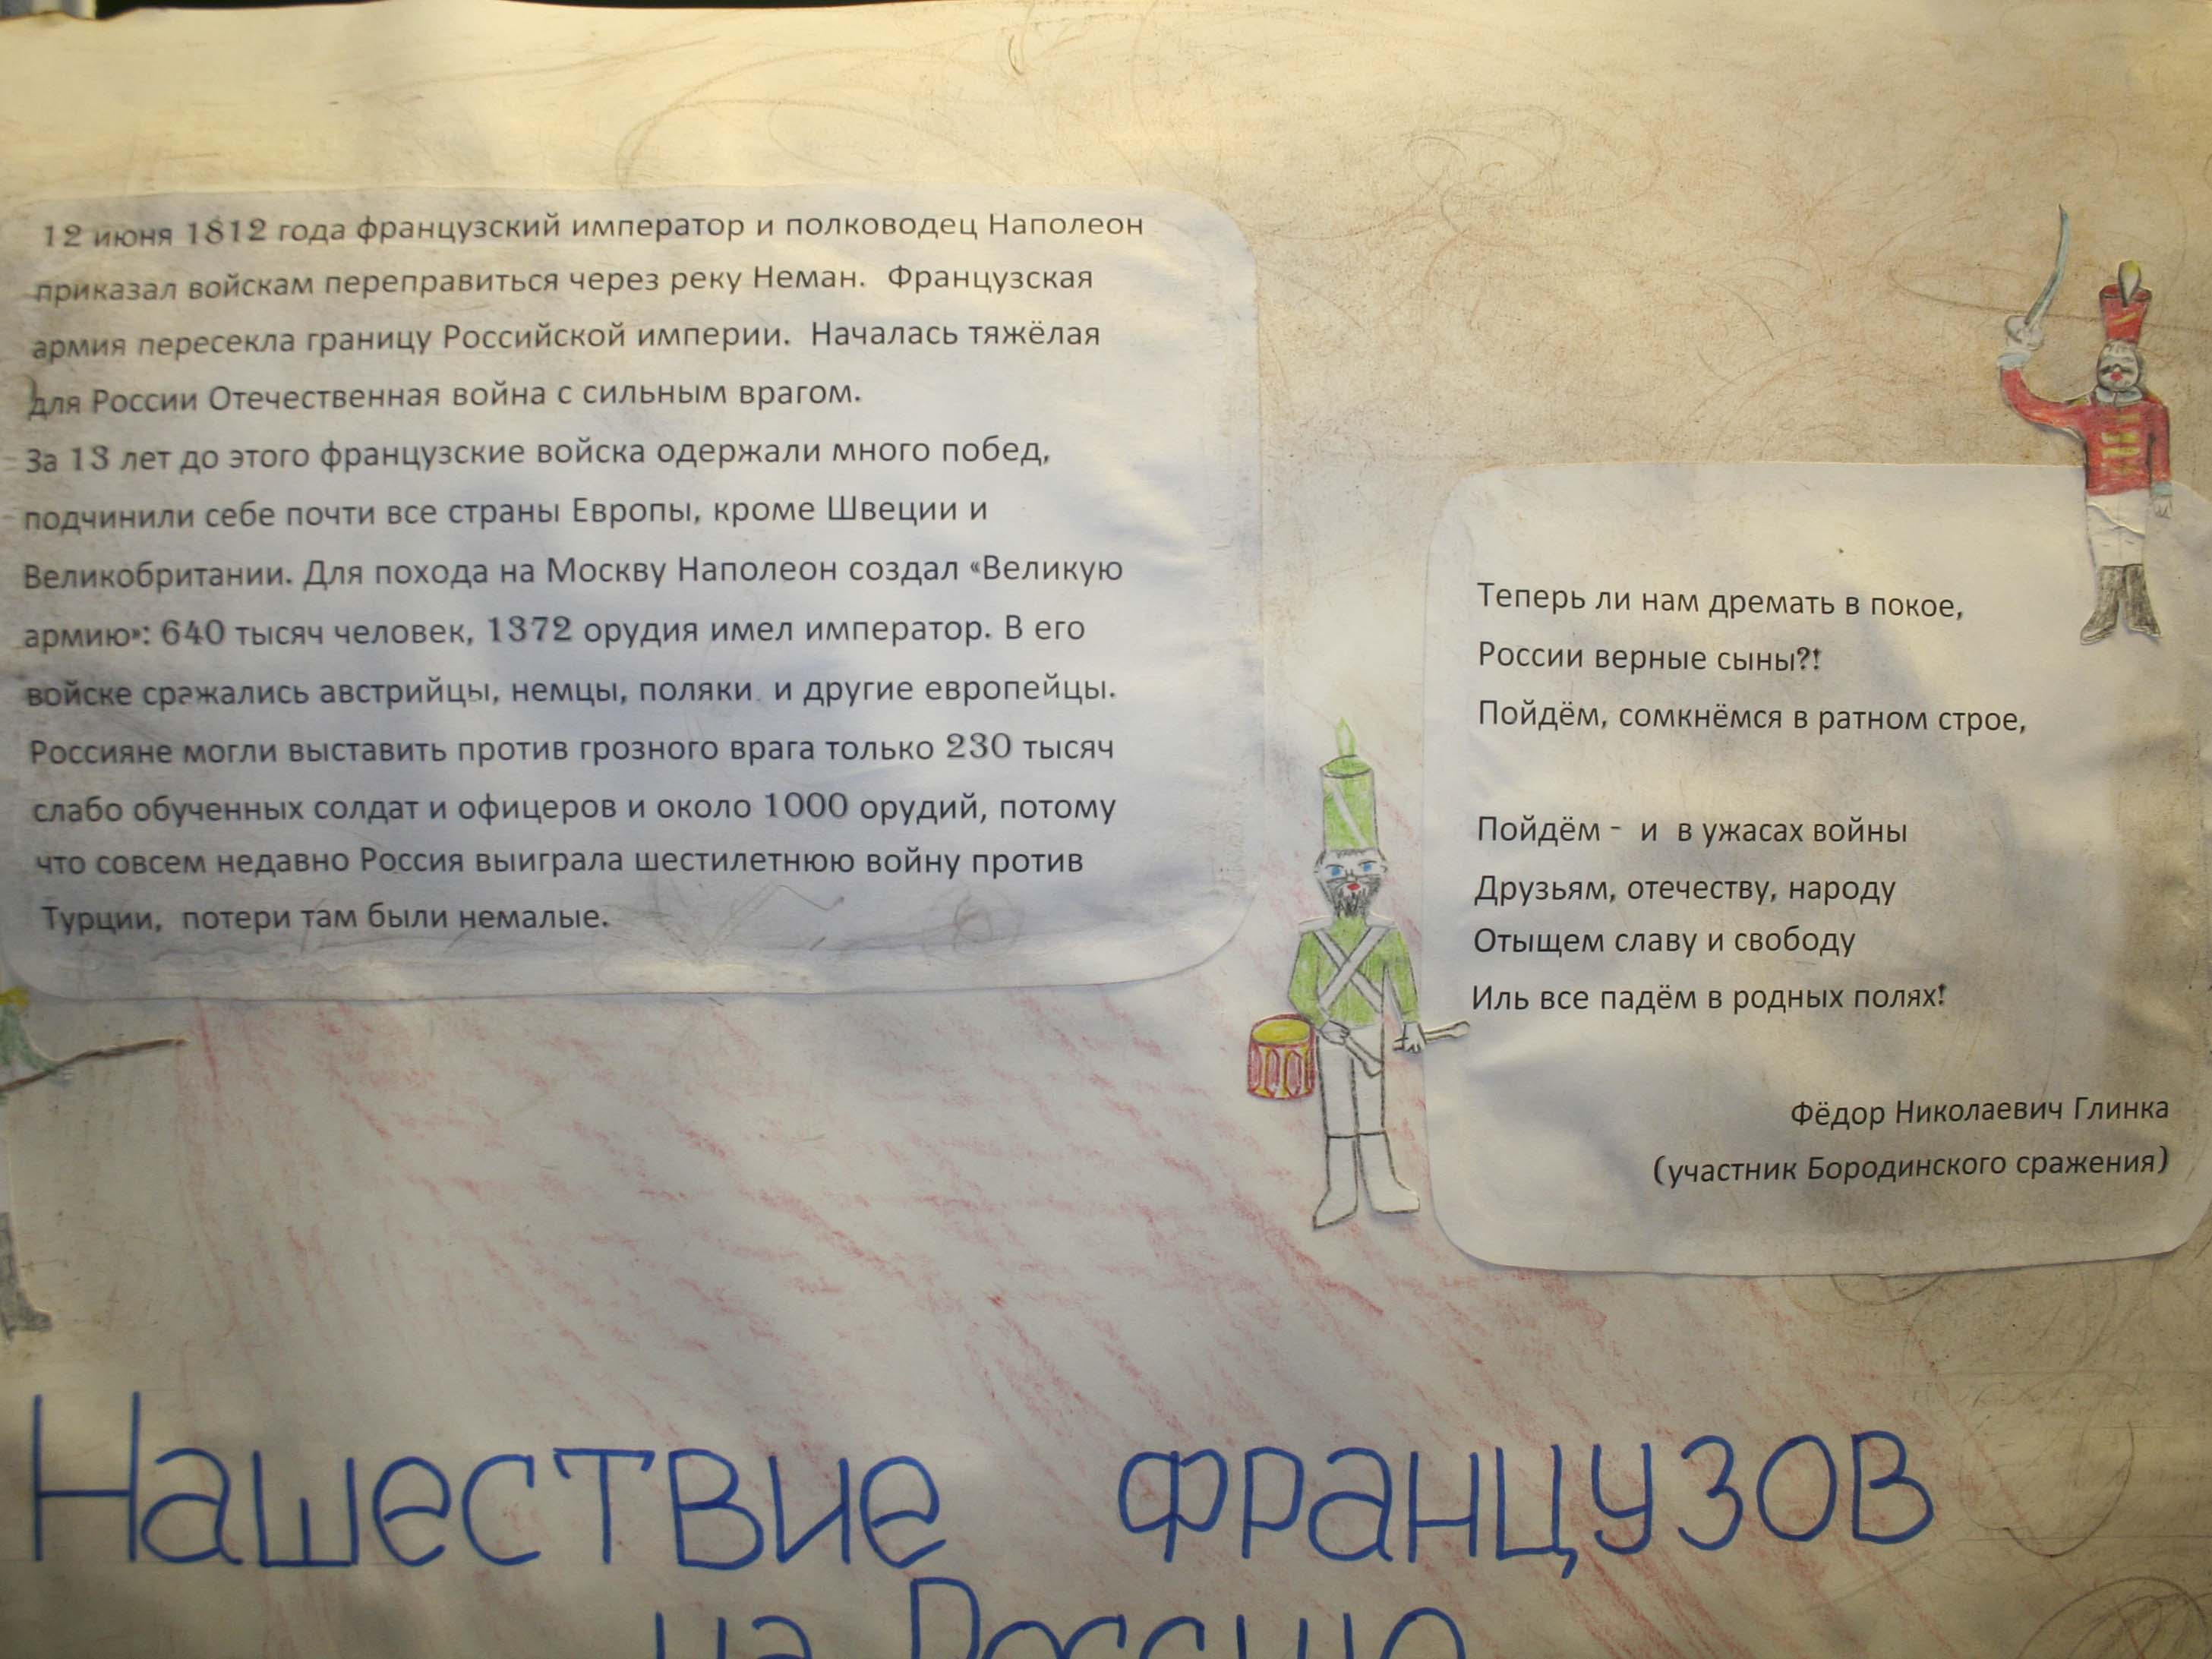 12 июня 1812 года французский император и полководец Наполеон
приказал войскам переправиться через реку Неман. Французская
армия пересекла границу Российской империи. Началась тяжёлая
для России Отечественная война с сильным врагом.
За 13 лет до этого французские войска одержали много побед,
подчинили себе почти все страны Европы, кроме Швеции и
Великобритании. Для похода на Москву Наполеон создал «Великую
армию»: 640 тысяч человек, 1372 орудия имел император. В его
войске сражались австрийцы, немцы, поляки и другие европейцы.
Россияне могли выставить против грозного врага только 230 тысяч
слабо обученных солдат и офицеров и около 1000 орудий, потому
что совсем недавно Россия выиграла шестилетнюю войну против
Турции, потери там были немалые.
Теперь ли нам дремать в покое,
России верные сыны?!
Пойдём, сомкнёмся в ратном строе,
Пойдём - и в ужасах войны
Друзьям, отечеству, народу
Отыщем славу и свободу
Иль все падём в родных полях!
Фёдор Николаевич Глинка
(участник Бородинского сражения)
Нашествие французов
на Россию